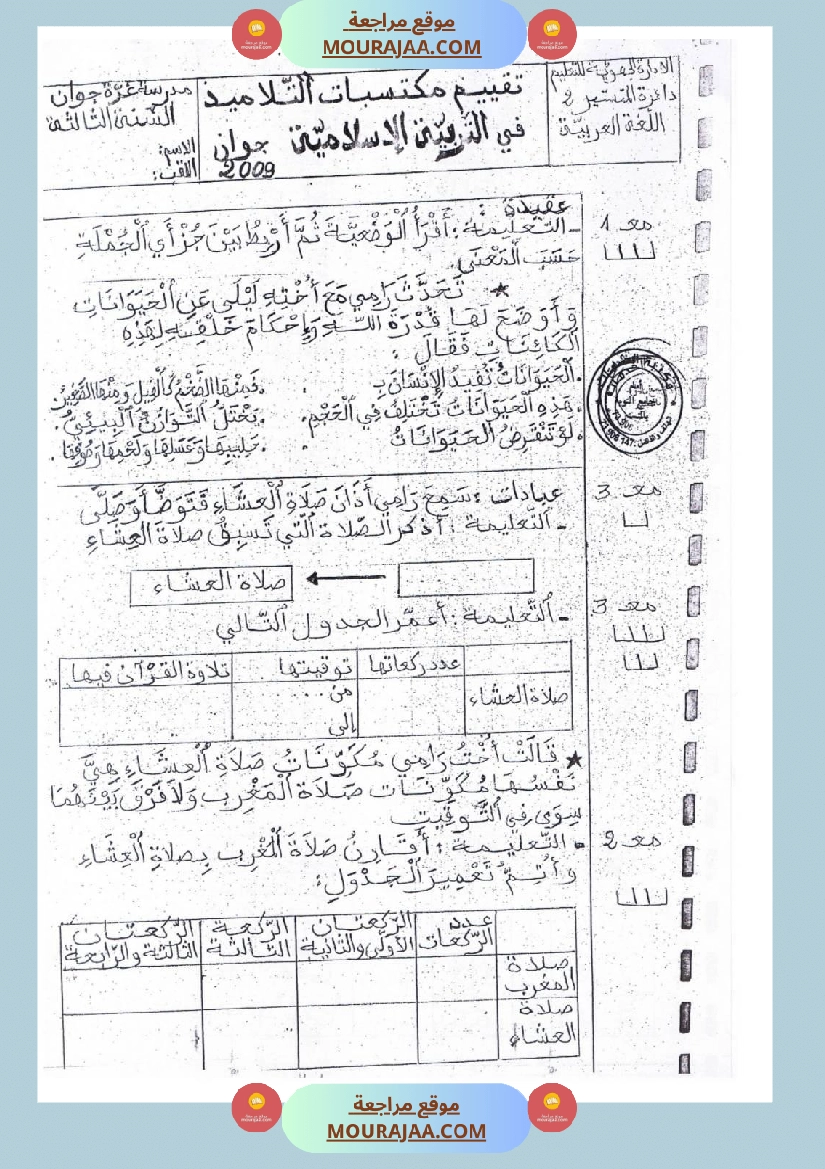 موقع مراجعة
MOURAJAA.COM
الادارة الجهوية للتعليم
دائرة المنستير 2
اللغة العربيّة
تقييم مكتسبات التّلاميذ
في التربيّة الإسلاميّة جوان
2009
مدرسة غرّة جوان
السّنة الثالثة
الاسم:
اللقب:
عقيدة:
مع 1
- التّعليمة: أَقْرَأُ الْوَضْعِيَّةَ ثُمَّ أَرْبِطُ بَيْنَ جُزْأَيِ الْجُمْلَةِ
حَسَبَ الْمَعْنَى.
★ تَحَدَّثَ رَامِي مَعَ أُخْتِهِ لَيْلَى عَنِ الْحَيَوَانَاتِ
وَأَوْضَحَ لَهَا قُدْرَةَ اللّهِ وَإِحْكَامَ خَلْقِهِ لِهَذِهِ
الْكَائِنَاتِ فَقَالَ:
. الْحَيَوَانَاتُ تُفِيدُ الإِنْسَانَ بِ . . فَمِنْهَا الضَّخْمُ كَالْفِيلِ وَمِنْهَا الصَّغِيرُ
. هَذِهِ الْحَيَوَانَاتُ تَخْتَلِفُ فِي الْحَجْمِ. . يَخْتَلُّ التَّوَازُنُ الْبِيئِيُّ.
. لَوْ تَنْقَرِضُ الْحَيَوَانَاتُ . حَلِيبِهَا وَعَسَلِهَا وَلَحْمِهَا وَصُوفِهَا .
مع 3
عبادات: سَمِعَ رَامِي أَذَانَ صَلَاةِ الْعِشَاءِ فَتَوَضَّأَ وَصَلَّى
- التّعليمة: أذكر الصّلاة الّتي تَسبِقُ صلاةَ العِشَاءِ
صلاة العشاء
مع 3
- التّعليمة: أعمّر الجدول التّالي
عدد ركعاتها توقيتها تلاوة القرْآن فيها
صلاة العشاء من ....
إلى
★ قَالَتْ أُخْتُ رَامِي مُكَوِّنَاتُ صَلَاةِ الْعِشَاءِ هِيَّ
نَفْسُهَا مُكَوِّنَات صَلَاةِ الْمَغْرِبِ وَلَا فَرْقَ بَيْنَهُمَا
سِوَى فِي التَّوْقِيتِ
مع 2
▪ التّعليمة: أُقَارِنُ صَلَاةَ الْمَغْرِبِ بِصلاةِ الْعِشَاءِ
وأُتِمُّ تَعْمِيرَ الْجَدْوَلِ:
عدد الرّكعات الرّكعتان الأولى والثانية الرّكعة الثالثة الرّكعتان الثالثة والرّابعة
صلاة المغرب
صلاة العشاء
موقع مراجعة
MOURAJAA.COM